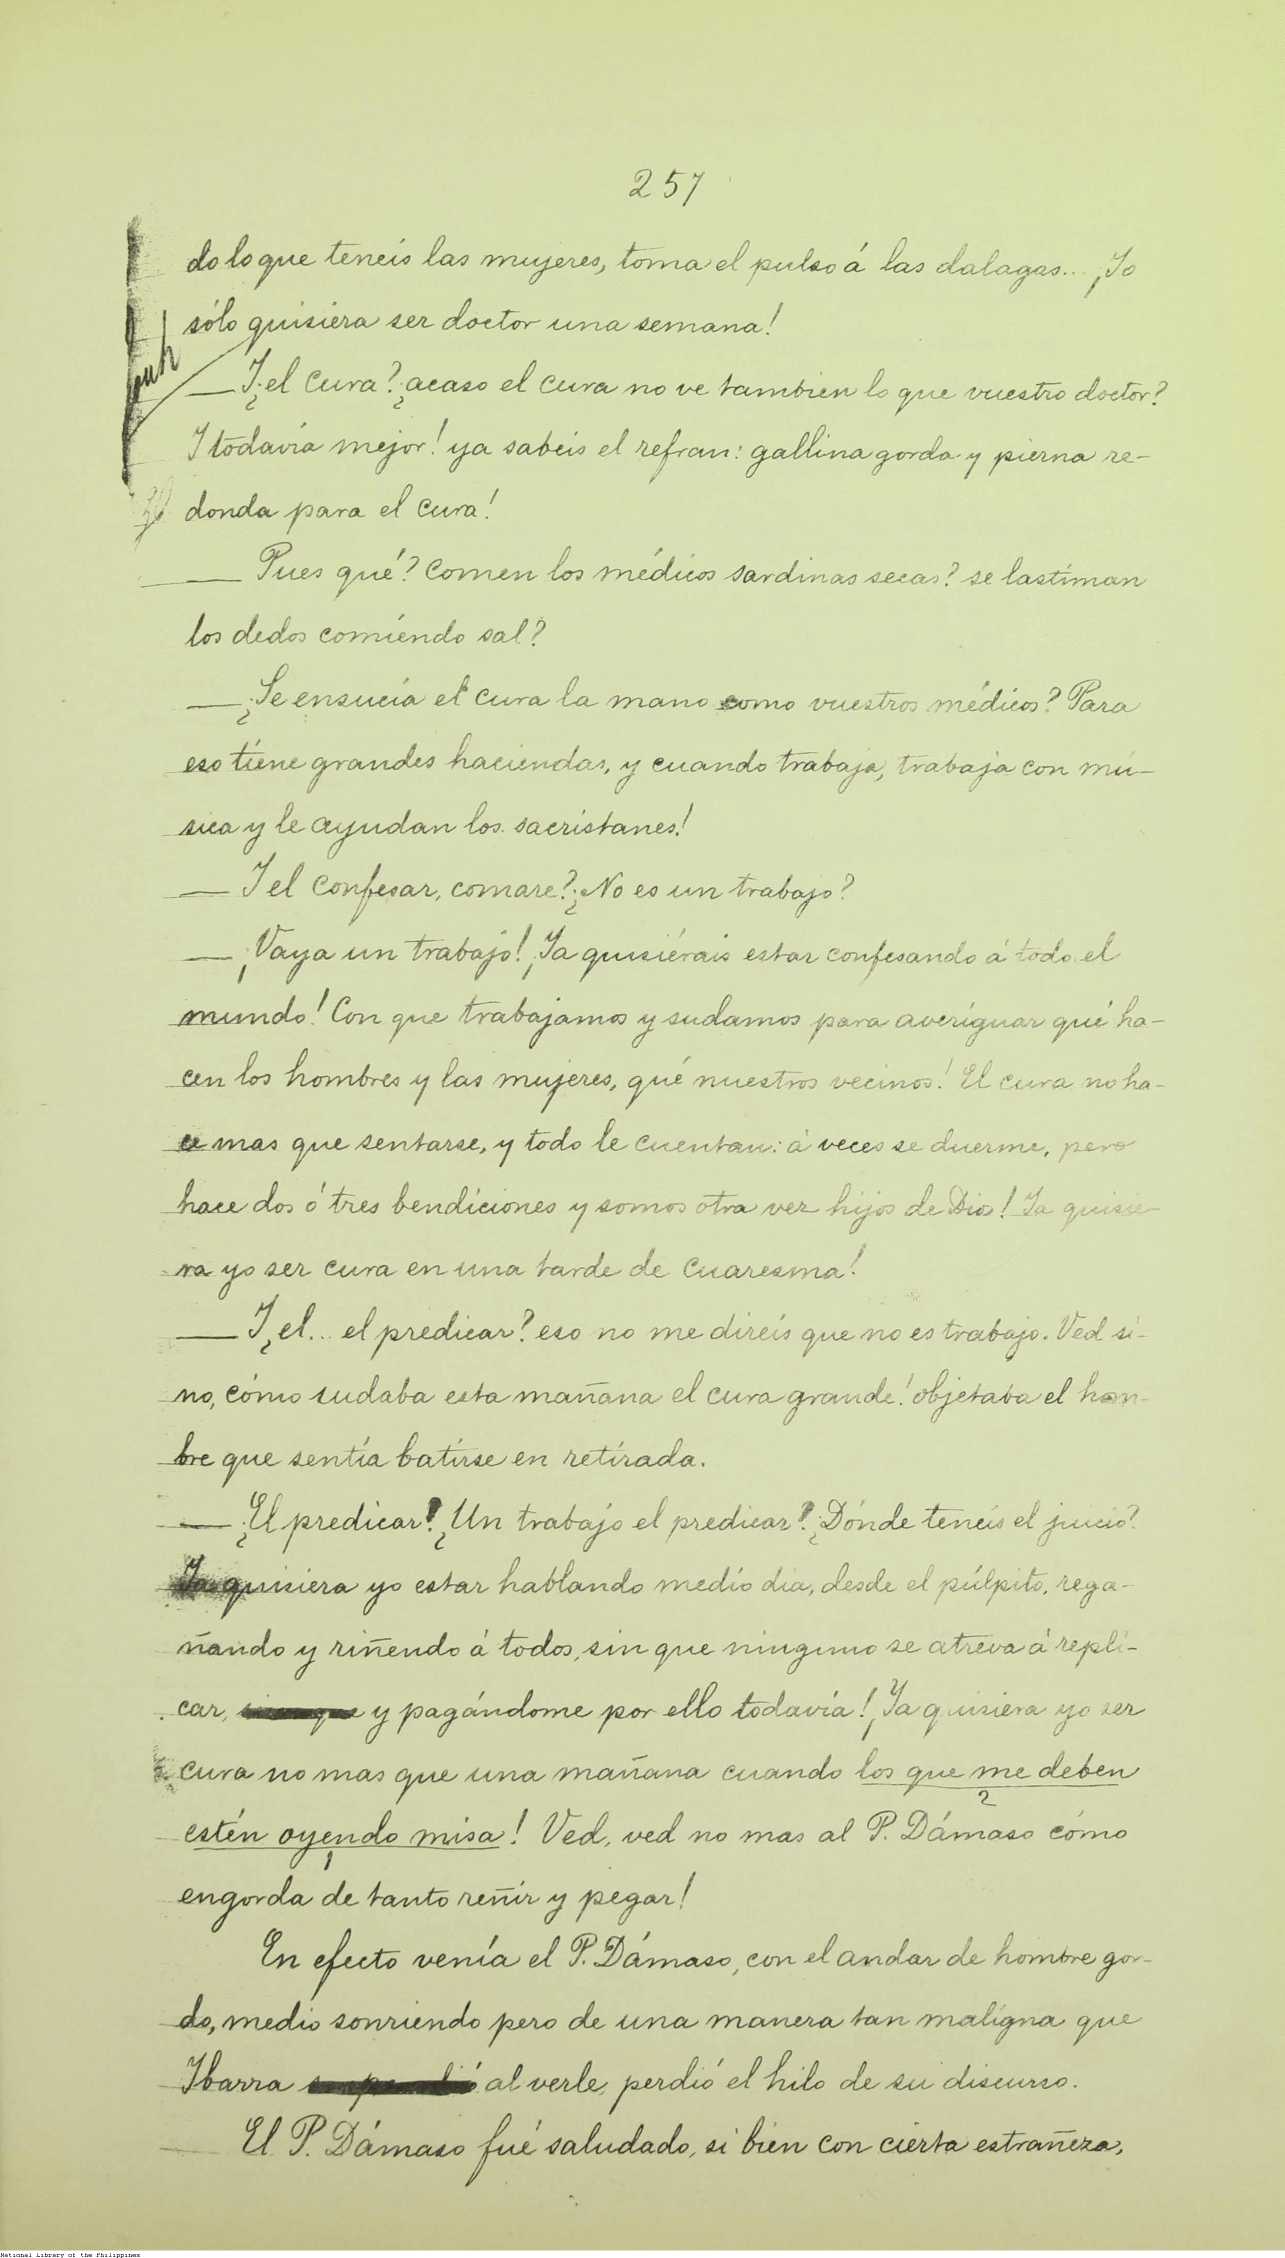 257
do lo que teneis las mujeres, toma el pulso á las dalagas... ¡Yo
sólo quisiera ser doctor una semana!
— Y ¿el cura? ¿acaso el cura no ve tambien lo que vuestro doctor?
Y todavía mejor! ya sabeis el refran: gallina gorda y pierna re-
donda para el cura!
— Pues qué? comen los médicos sardinas secas? se lastiman
los dedos comiendo sal?
— ¿Se ensucia el cura la mano como vuestros médicos? Para
eso tiene grandes haciendas, y cuando trabaja, trabaja con mú-
sica y le ayudan los sacristanes!
— Y el confesar, comare? ¿No es un trabajo?
— ¡Vaya un trabajo! ¡Ya quisiérais estar confesando á todo el
mundo! Con que trabajamos y sudamos para averiguar qué ha-
cen los hombres y las mujeres, qué nuestros vecinos! El cura no ha-
ce mas que sentarse, y todo le cuentan: á veces se duerme, pero
hace dos ó tres bendiciones y somos otra vez hijos de Dios! Ya quisie-
ra yo ser cura en una tarde de cuaresma!
— Y ¿el... el predicar? eso no me direis que no es trabajo. Ved si-
no, cómo sudaba esta mañana el cura grande! objetaba el hom-
bre que sentía batirse en retirada.
— ¿El predicar? ¿Un trabajo el predicar? ¿Dónde teneis el juicio?
Ya quisiera yo estar hablando medio dia, desde el púlpito, rega-
ñando y riñendo á todos, sin que ninguno se atreva á repli-
car, y pagándome por ello todavía! ¡Ya quisiera yo ser
cura no mas que una mañana cuando los que me deben
2
estén oyendo misa! Ved, ved no mas al P. Dámaso cómo
1
engorda de tanto reñir y pegar!
En efecto venía el P. Dámaso, con el andar de hombre gor-
do, medio sonriendo pero de una manera tan maligna que
Ibarra al verle, perdió el hilo de su discurso.
El P. Dámaso fué saludado, si bien con cierta estrañeza,
National Library of the Philippines